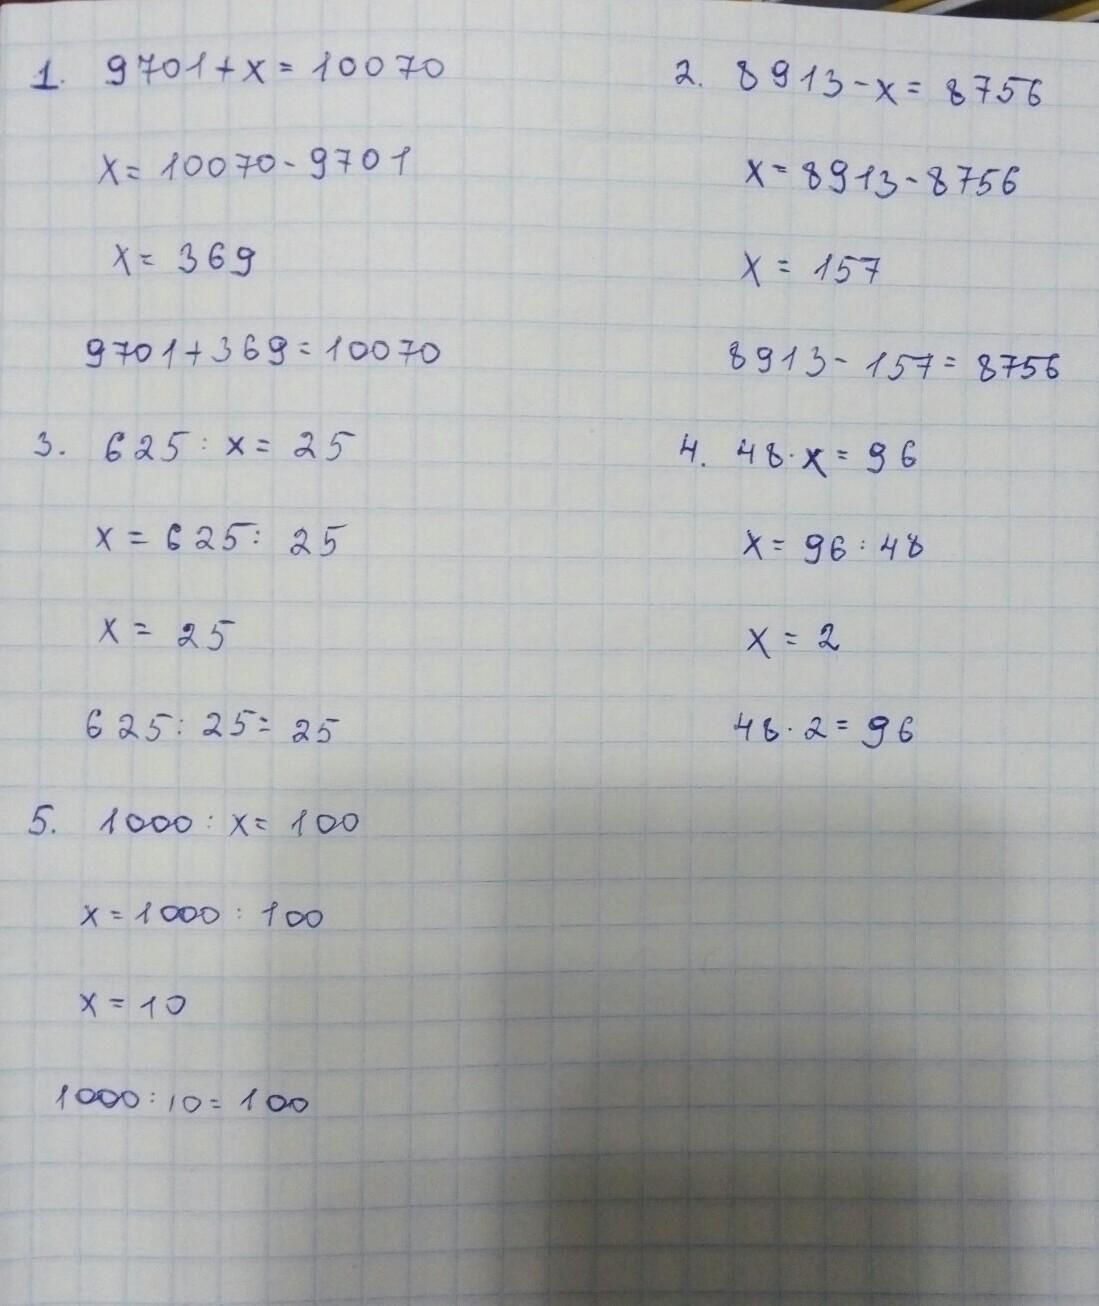 1. 9701+x=10070
x=10070-9701
x=369
9701+369=10070
2. 8913-x=8756
x=8913-8756
x=157
8913-157=8756
3. 625:x=25
x=625:25
x=25
625:25=25
4. 48·x=96
x=96:48
x=2
48·2=96
5. 1000:x=100
x=1000:100
x=10
1000:10=100